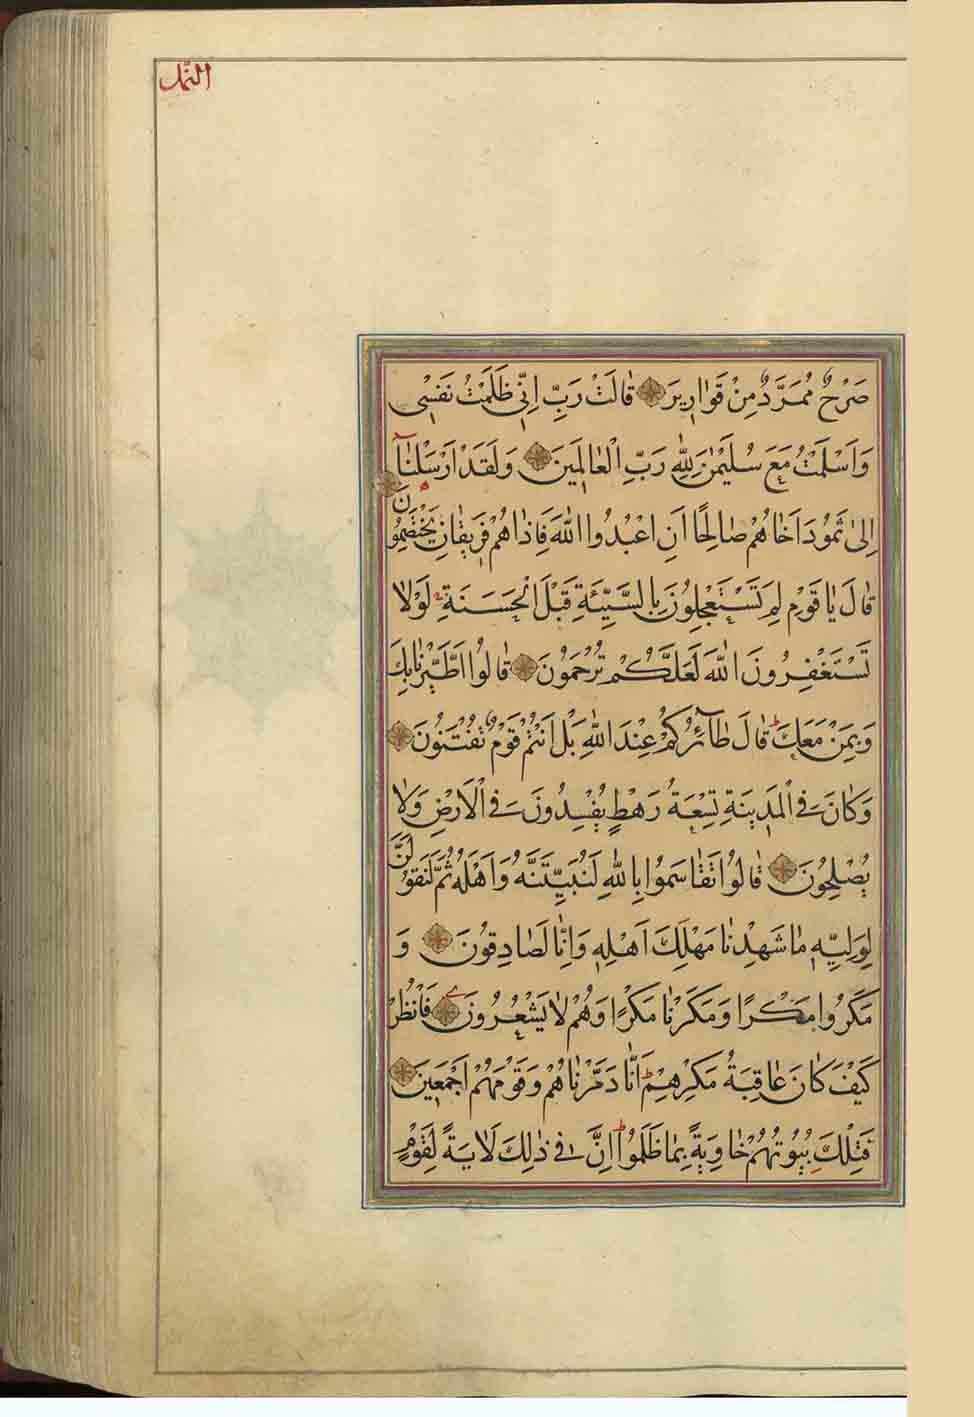 النمل
صَرْحٌ مُمَرَّدٌ مِنْ قَوَارِيرَ قَالَتْ رَبِّ اِنِّي ظَلَمْتُ نَفْسِي
وَاَسْلَمْتُ مَعَ سُلَيْمٰنَ لِلّٰهِ رَبِّ الْعَالَمِينَ وَلَقَدْ اَرْسَلْنَآ
اِلٰى ثَمُودَ اَخَاهُمْ صَالِحًا اَنِ اعْبُدُوا اللّٰهَ فَاِذَا هُمْ فَرِيقَانِ يَخْتَصِمُونَ
قَالَ يَا قَوْمِ لِمَ تَسْتَعْجِلُونَ بِالسَّيِّئَةِ قَبْلَ الْحَسَنَةِ لَوْلَا
تَسْتَغْفِرُونَ اللّٰهَ لَعَلَّكُمْ تُرْحَمُونَ قَالُوا اطَّيَّرْنَا بِكَ
وَبِمَنْ مَعَكَ قَالَ طَآئِرُكُمْ عِنْدَ اللّٰهِ بَلْ اَنْتُمْ قَوْمٌ تُفْتَنُونَ
وَكَانَ فِي الْمَدِينَةِ تِسْعَةُ رَهْطٍ يُفْسِدُونَ فِي الْاَرْضِ وَلَا
يُصْلِحُونَ قَالُوا تَقَاسَمُوا بِاللّٰهِ لَنُبَيِّتَنَّهُ وَاَهْلَهُ ثُمَّ لَنَقُولَنَّ
لِوَلِيِّهِ مَا شَهِدْنَا مَهْلِكَ اَهْلِهِ وَاِنَّا لَصَادِقُونَ وَ
مَكَرُوا مَكْرًا وَمَكَرْنَا مَكْرًا وَهُمْ لَا يَشْعُرُونَ فَانْظُرْ
كَيْفَ كَانَ عَاقِبَةُ مَكْرِهِمْ اَنَّا دَمَّرْنَاهُمْ وَقَوْمَهُمْ اَجْمَعِينَ
فَتِلْكَ بُيُوتُهُمْ خَاوِيَةً بِمَا ظَلَمُوا اِنَّ فِي ذٰلِكَ لَاٰيَةً لِقَوْمٍ